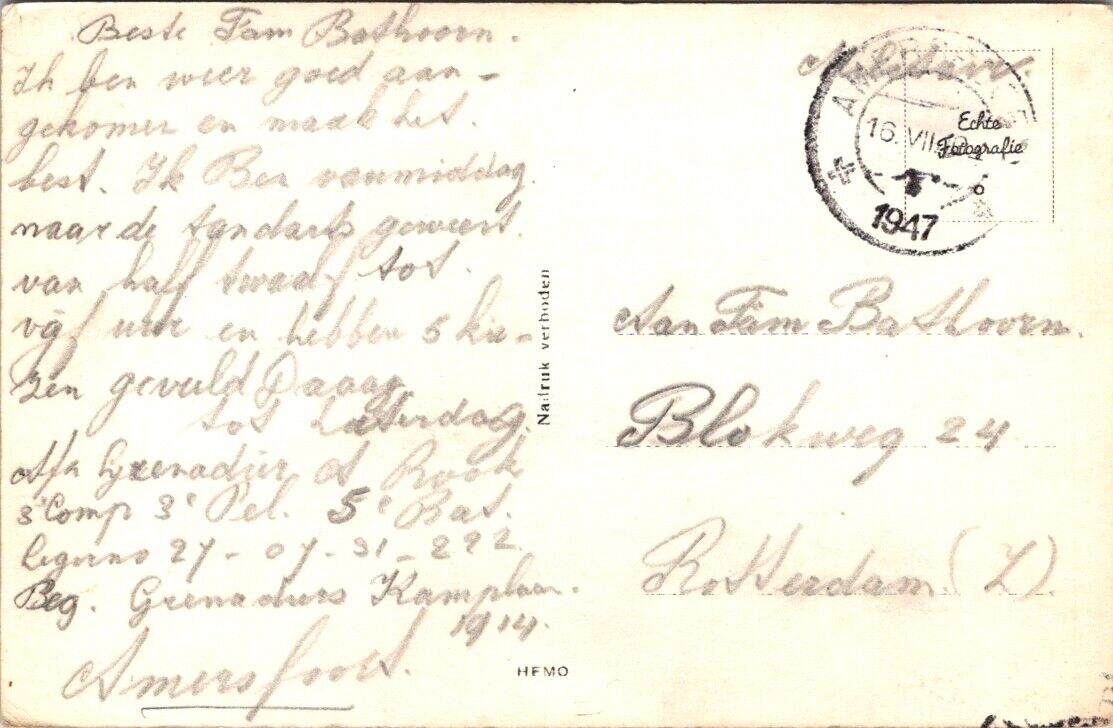 Beste Fam Bathoorn.
Ik ben weer goed aan-
gekomen en maak het.
best. Ik Ben vanmiddag.
naar de tandarts geweest.
van half twaalf tot.
vijf uur en hebben 5 kie-
zen gevuld Daaag.
tot Zaterdag.
Afz Grenadier A Rook
3e Comp 3e Pel. 5e Bat.
legerno 27-07-31-292
Reg. Grenadiers Kamplaan.
1914.
Amersfoort.
Nadruk verboden
HEMO
Militair.
AMERSFOORT
16. VII.
1947
Echte
Fotografie
Aan Fam Bathoorn.
Blokweg 24
Rotterdam (Z).